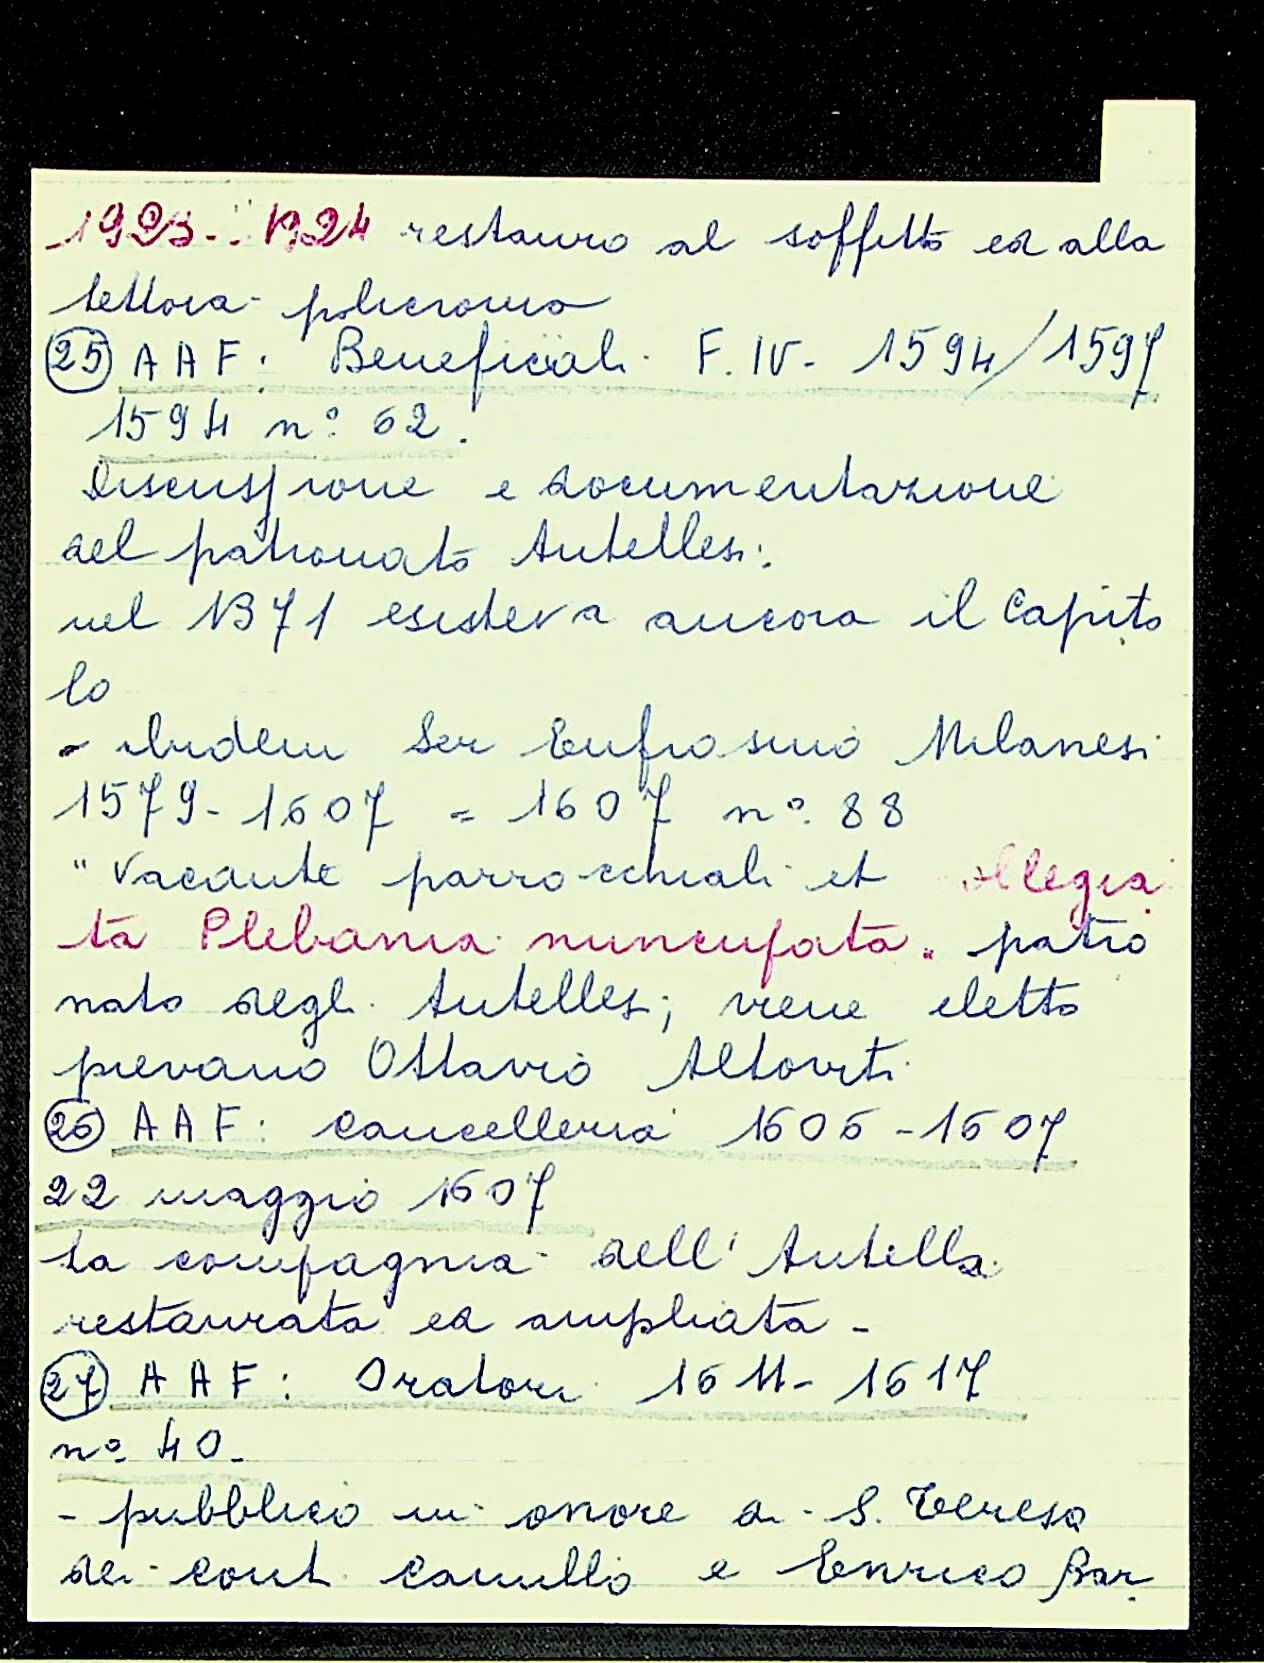 1923-1924 restauro al soffitto ed alla
tettoia policroma
25 AAF: Beneficiali F. IV - 1594/1597
1594 n° 62.
Discussione e documentazione
del patronato Antellesi:
nel 1371 esisteva ancora il Capito
lo
- Ibidem Ser Eufrosino Milanesi
1579-1607 = 1607 n° 88
"Vacante parrocchiali et ollegia
ta Plebania nuncupata" patro
nato degli Antellesi; viene eletto
pievano Ottavio Altoviti
26 AAF: Cancelleria 1606-1607
22 maggio 1607
La compagnia dell'Antella
restaurata ed ampliata -
27 AAF: Oratori 1611-1617
n° 40 -
- pubblico in onore di S. Teresa
dei conti Camillo e Enrico Bar